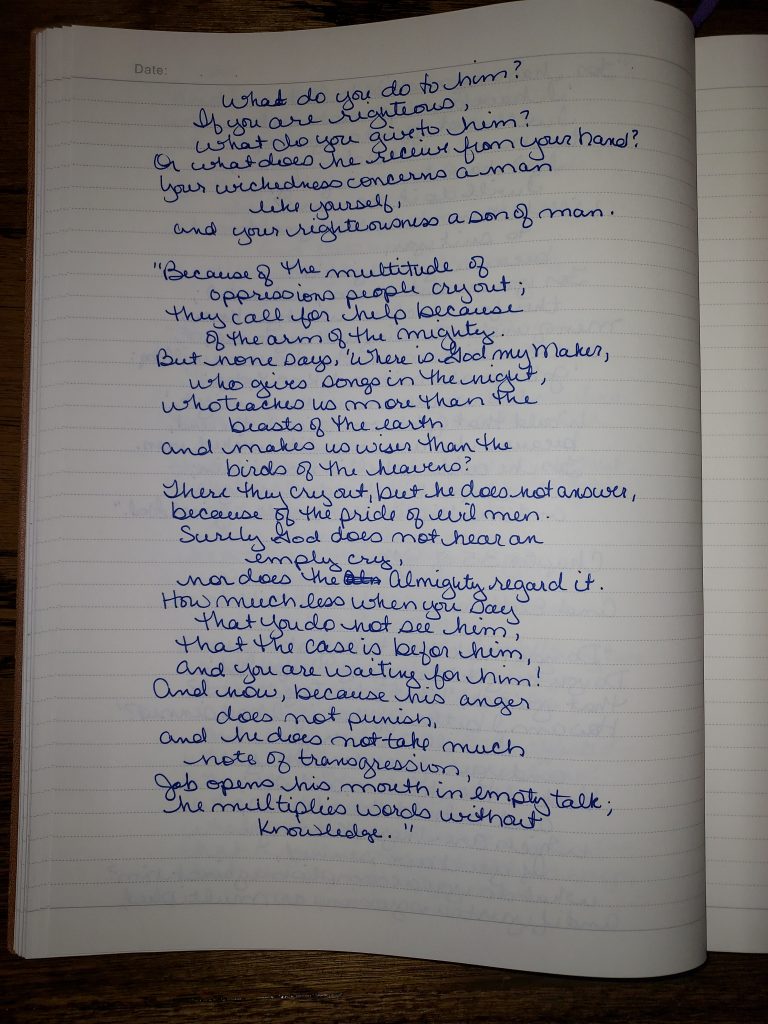 Date:
What do you do to him?
If you are righteous,
what do you give to him?
Or what does he receive from your hand?
Your wickedness concerns a man
like yourself,
and your righteousness a son of man.
"Because of the multitude of
oppressions people cry out;
they call for help because
of the arm of the mighty.
But none says, 'Where is God my Maker,
who gives songs in the night,
who teaches us more than the
beasts of the earth
and makes us wiser than the
birds of the heavens?
There they cry out, but he does not answer,
because of the pride of evil men.
Surely God does not hear an
empty cry,
nor does the Almighty regard it.
How much less when you say
that you do not see him,
that the case is befor him,
and you are waiting for him!
And now, because his anger
does not punish,
and he does not take much
note of transgression,
Job opens his mouth in empty talk;
he multiplies words without
knowledge."